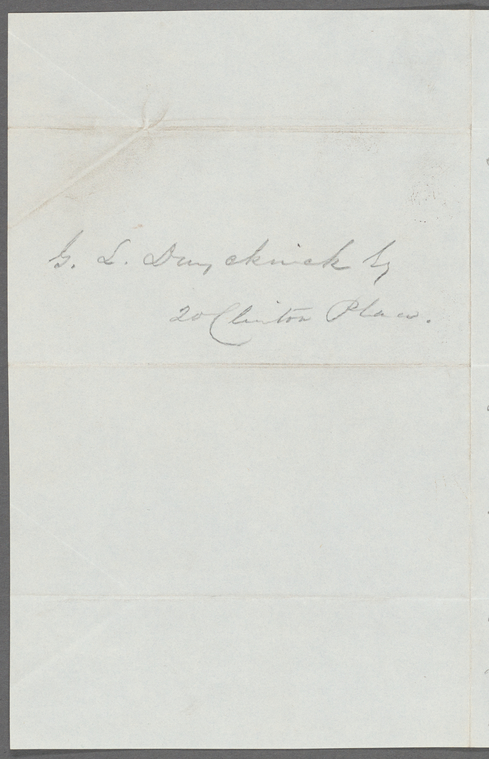 G. L. Duyckinck Esq
20 Clinton Place.